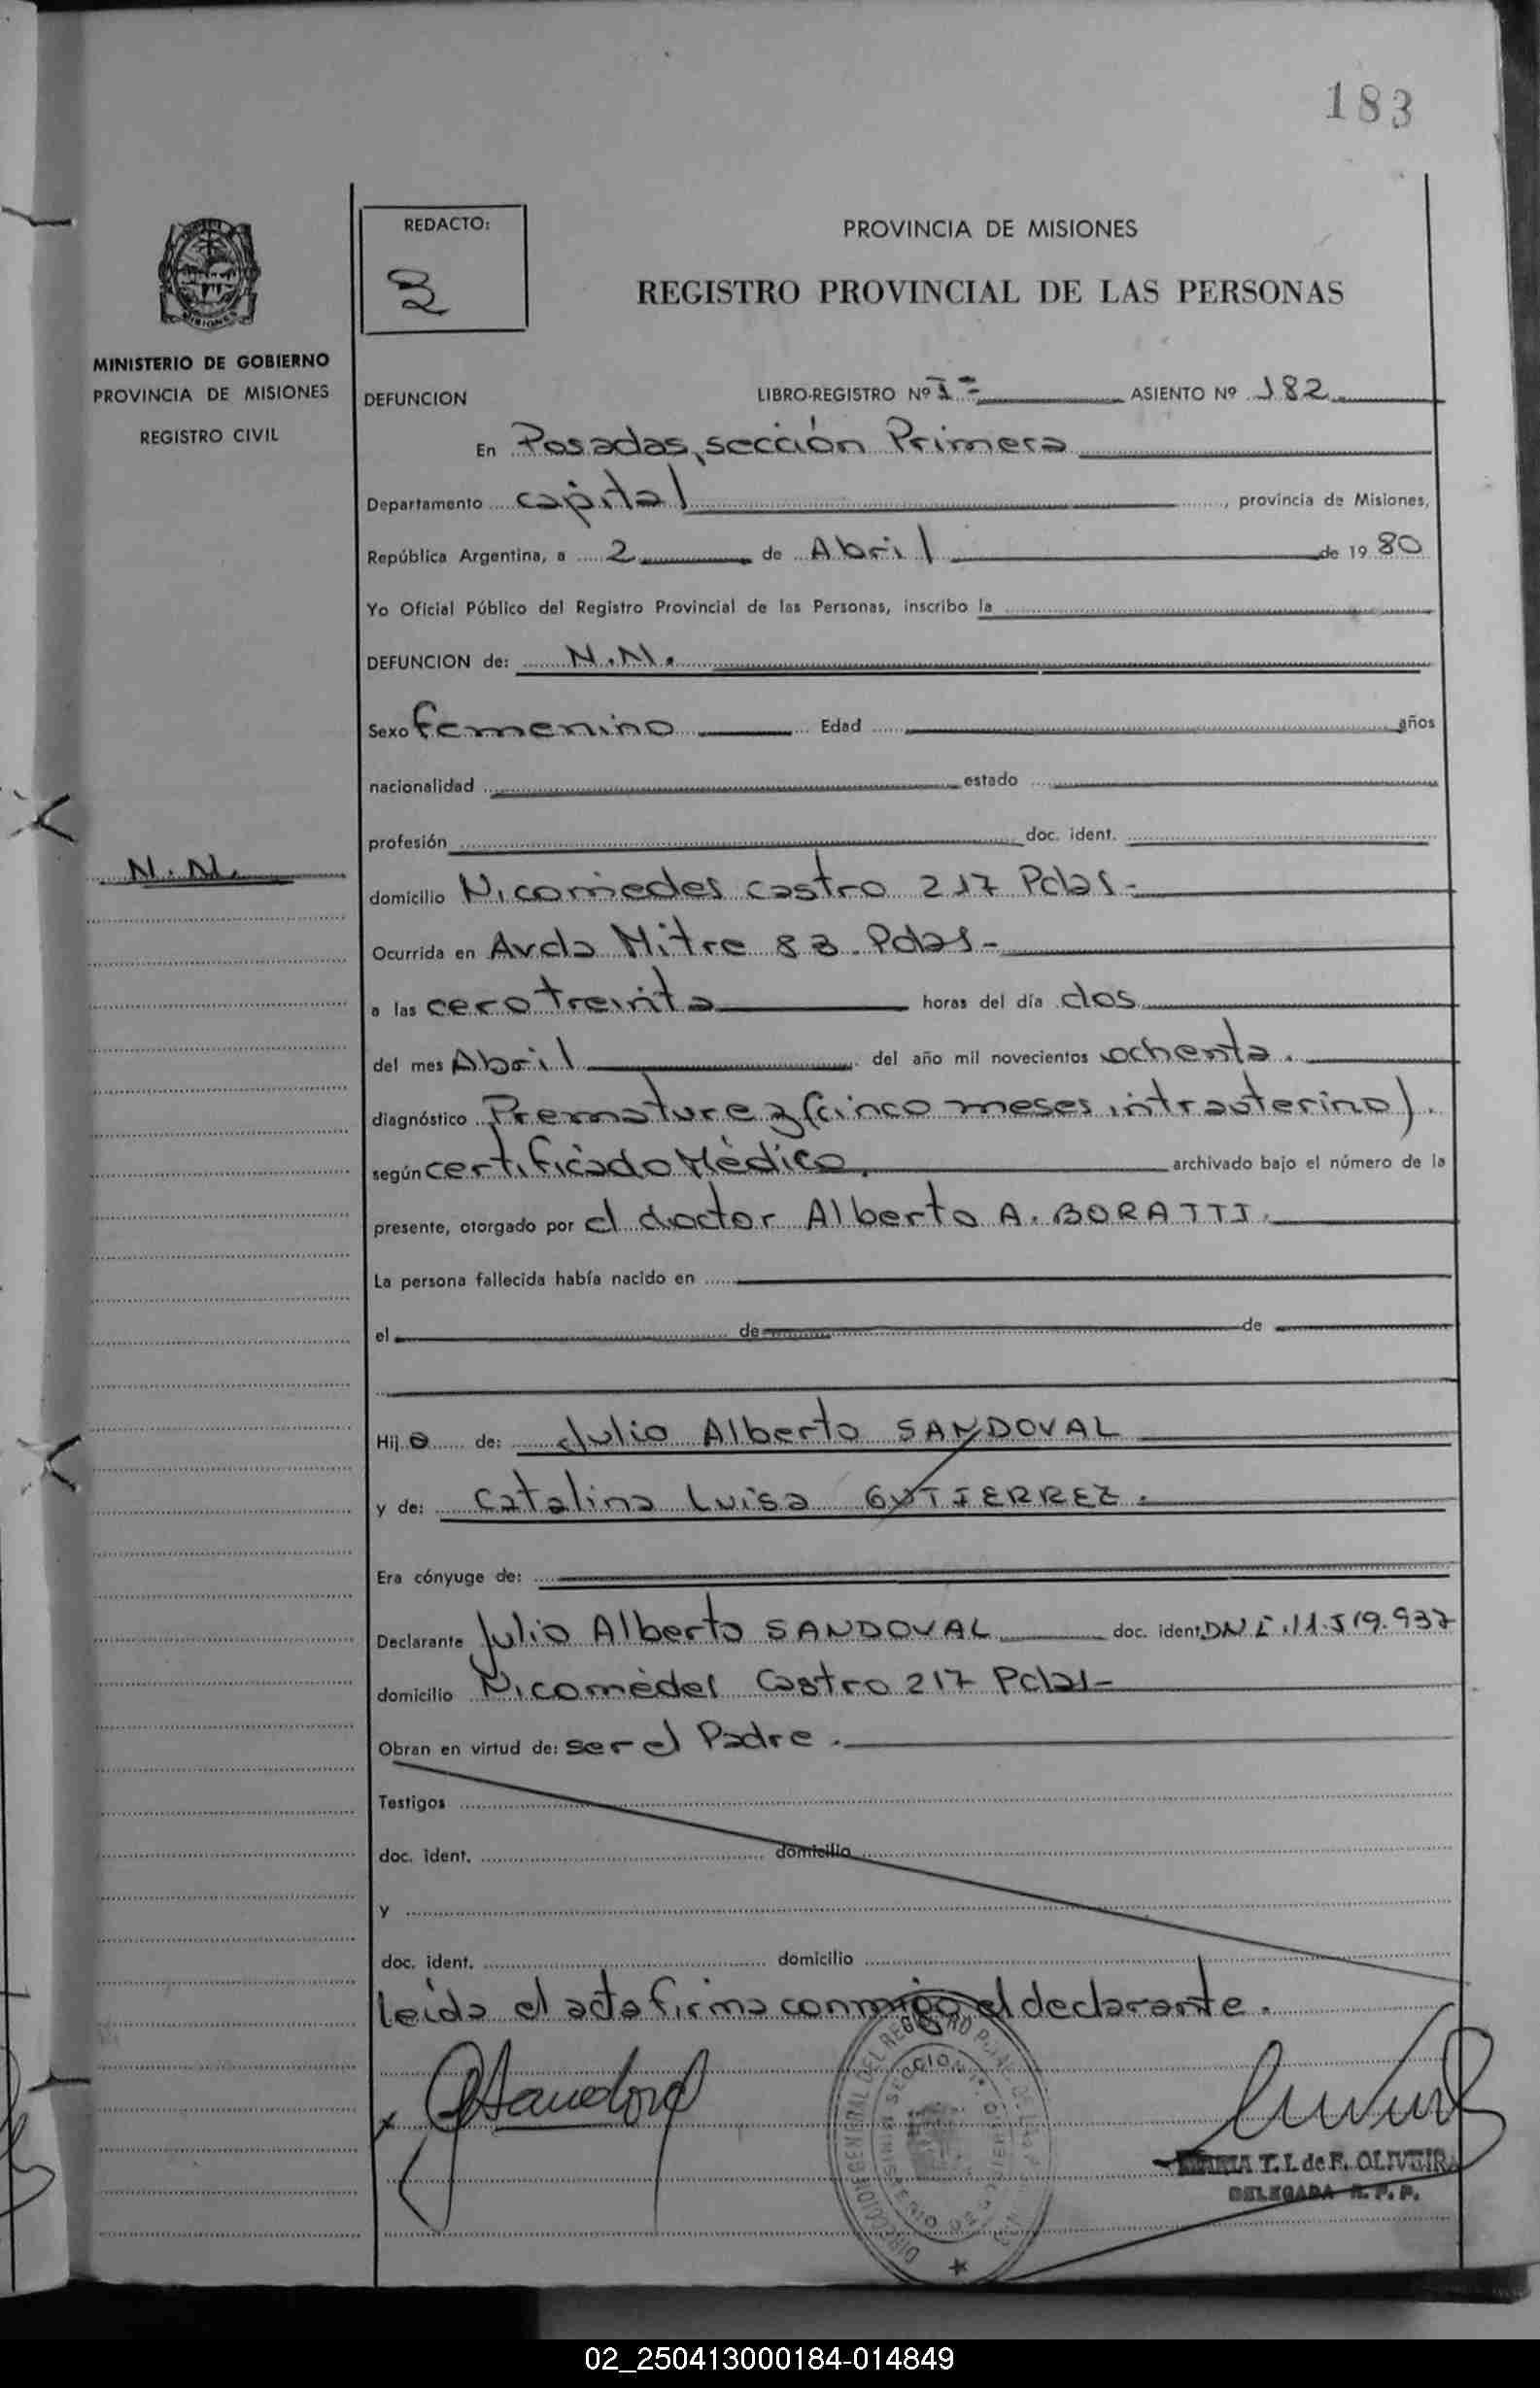 183
REDACTO:
PROVINCIA DE MISIONES
REGISTRO PROVINCIAL DE LAS PERSONAS
MISIONES
MINISTERIO DE GOBIERNO
PROVINCIA DE MISIONES
REGISTRO CIVIL
DEFUNCION LIBRO-REGISTRO Nº I - ASIENTO Nº 182
En Posadas, sección Primera
Departamento capital, provincia de Misiones,
República Argentina, a 2 de Abril de 1980
Yo Oficial Público del Registro Provincial de las Personas, inscribo la
DEFUNCION de: N.N.
Sexo femenino Edad años
nacionalidad estado
profesión doc. ident.
N.N.
domicilio Nicomedes Castro 217 Pdas-
Ocurrida en Avda Mitre 83. Pdas-
a las cero treinta horas del día dos
del mes Abril del año mil novecientos ochenta.
diagnóstico Prematurez (cinco meses intrauterino).
según certificado Médico, archivado bajo el número de la
presente, otorgado por el doctor Alberto A. BORATTI.
La persona fallecida había nacido en
el de de
Hija de: Julio Alberto SANDOVAL
y de: Catalina Luisa GUTIERREZ.
Era cónyuge de:
Declarante Julio Alberto SANDOVAL doc. ident. DNI.11.519.937
domicilio Nicomédes Castro 217 Pdas-
Obran en virtud de: ser el Padre.
Testigos
doc. ident. domicilio
y
doc. ident. domicilio
leída el acta firma conmigo el declarante.
DIRECCION GENERAL DEL REGISTRO
MARIA T. I. de F. OLIVEIRA
DELEGADA R. P. P.
02_250413000184-014849